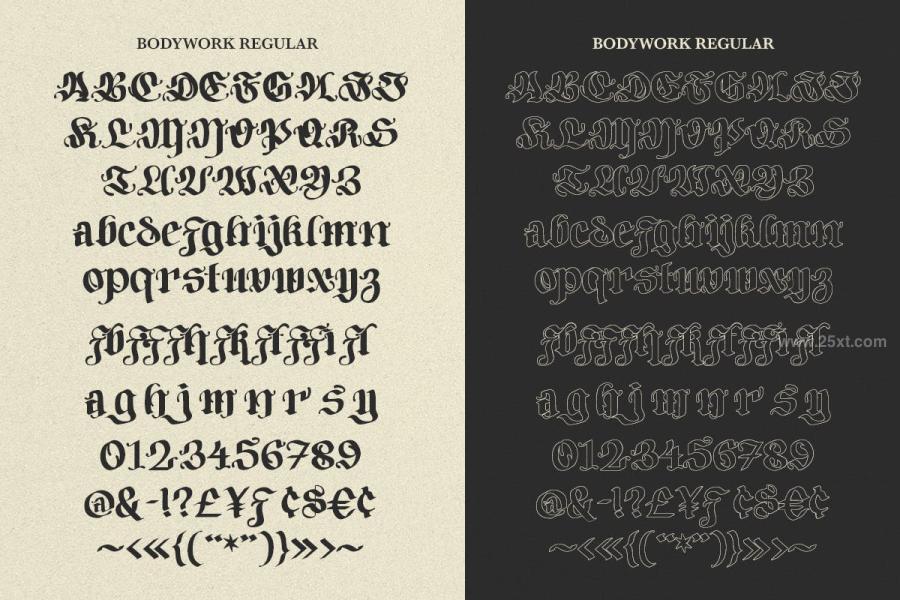 BODYWORK REGULAR
ABCDEFGHIJ
KLMNOPQRS
TUVWXYZ
abcdefghijklmn
opqrstuvwxyz
a g h j m n r s y
0123456789
@&-!?£¥ƒ¢$€¢
~‹«{(“*”)}»›~
BODYWORK REGULAR
ABCDEFGHIJ
KLMNOPQRS
TUVWXYZ
abcdefghijklmn
opqrstuvwxyz
www.25xt.com
a g h j m n r s y
0123456789
@&-!?£¥ƒ¢$€¢
~‹«{(“*”)}»›~